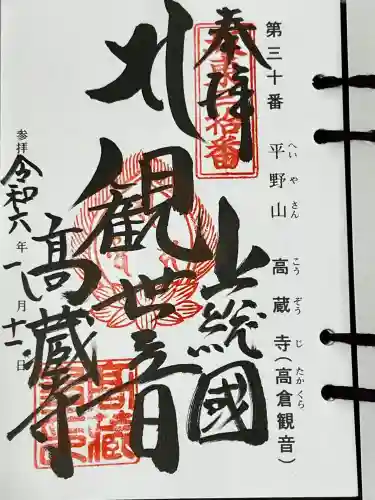 第三十番 平野山 高蔵寺(高倉観音)
へいやさん こうぞうじ たかくら
奉拝
坂東三拾番
上総國
観世音
高蔵寺
参拝 令和六年一月十一日
高蔵